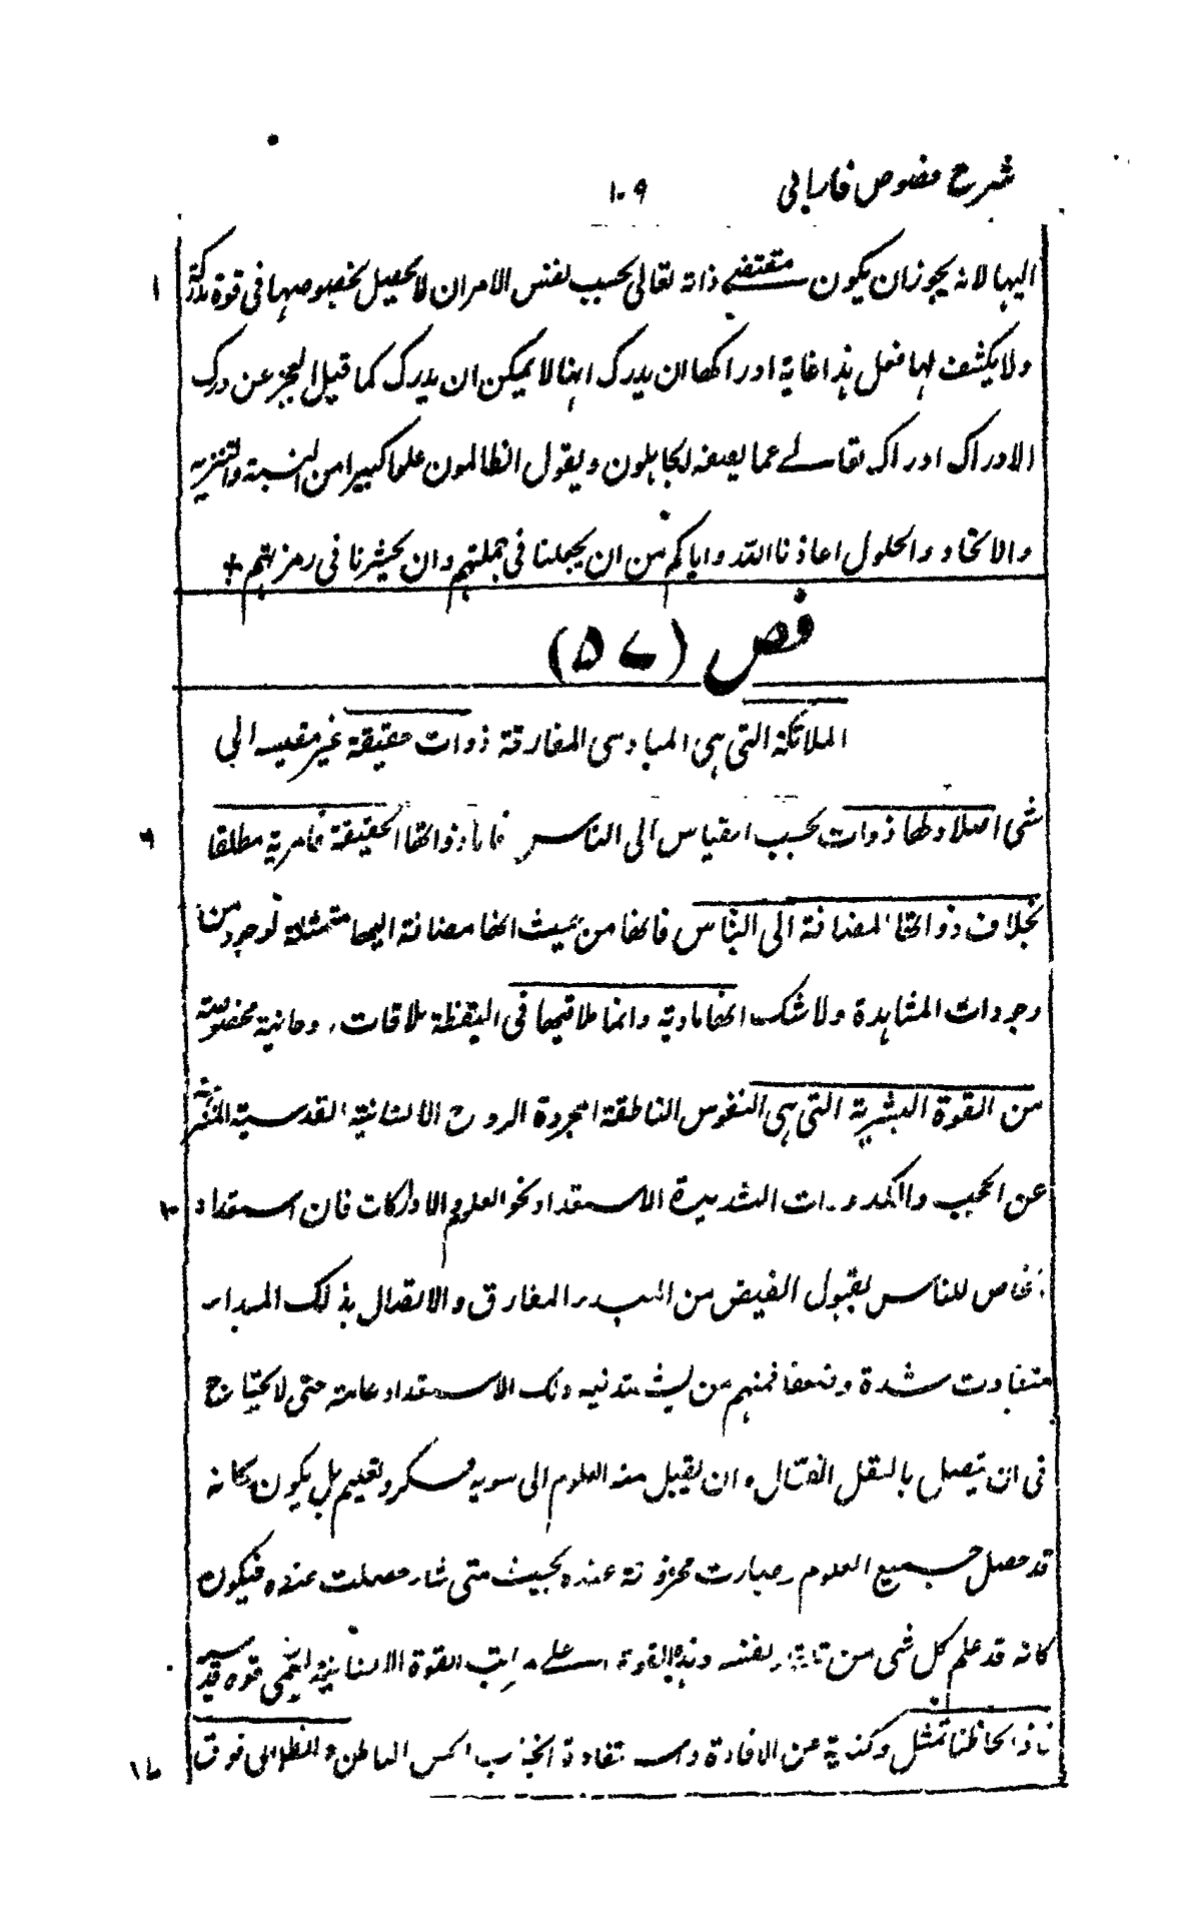 شرح فصوص فارابی ١٠٩
الیها لانه یجوز ان یکون مقتضے ذاته تعالی بحسب نفس الامر ان لا یحصل بخصوصها فی قوة مدرکة ١
ولا یکشف لها فعل هذا غایة ادراکها ان یدرک انها لا یمکن ان یدرک کما قیل العجز عن درک
الادراک ادراک تعالے عما یصفه الجاهلون ویقول الظالمون علوا کبیرا من النسبة والتنزیه
والاتحاد والحلول اعاذنا الله وایاکم من ان یجعلنا فی جملتهم وان یحشرنا فی زمرتهم +
فص (٥٧)
الملائکة التی هی المبادی المفارقة ذوات حقیقة غیر مقیسه الی
شی اصلا ولها ذوات بحسب القیاس الی الناس فاما ذواتها الحقیقة فامریة مطلقا ٦
بخلاف ذواتها المضافة الی الناس فانها من حیث انها مضافة الیها متمثلة توجد من
وجودات المشاهدة ولا شک انها مادیة وانما ملاقیها فی الیقظة ملاقات روحانیة مخصوصة
من القوة البشریة التی هی النفوس الناطقة المجردة الروح الانسانیة القدسیة
عن الحجب والکدورات الشدیدة الاستعداد نحو العلوم والادراکات فان استعداد ١٠
الخاص للناس لقبول الفیض من المبدء المفارق والاتصال بذلک المبداء
متفاوت شدة وضعفا فمنهم من یشتد فیه ذلک الاستعداد عامة حتی لا یحتاج
فی ان یتصل بالعقل الفعال وان یقبل منه العلوم الی سویه فکر وتعلیم بل یکون کانه
قد حصل جمیع العلوم وصارت مخزونة عنده بحیث متی شاء حصلت عنده فیکون
کانه قد علم کل شی من تلقاء نفسه وهذه القوة اعلے مراتب القوة الانسانیة لیسمی قوه قدسیه
فاذا خاطبنا تمثل وکنایة عن الافادة والاستفادة انجذب الحس الباطن والظاهر الی فوق ١٧